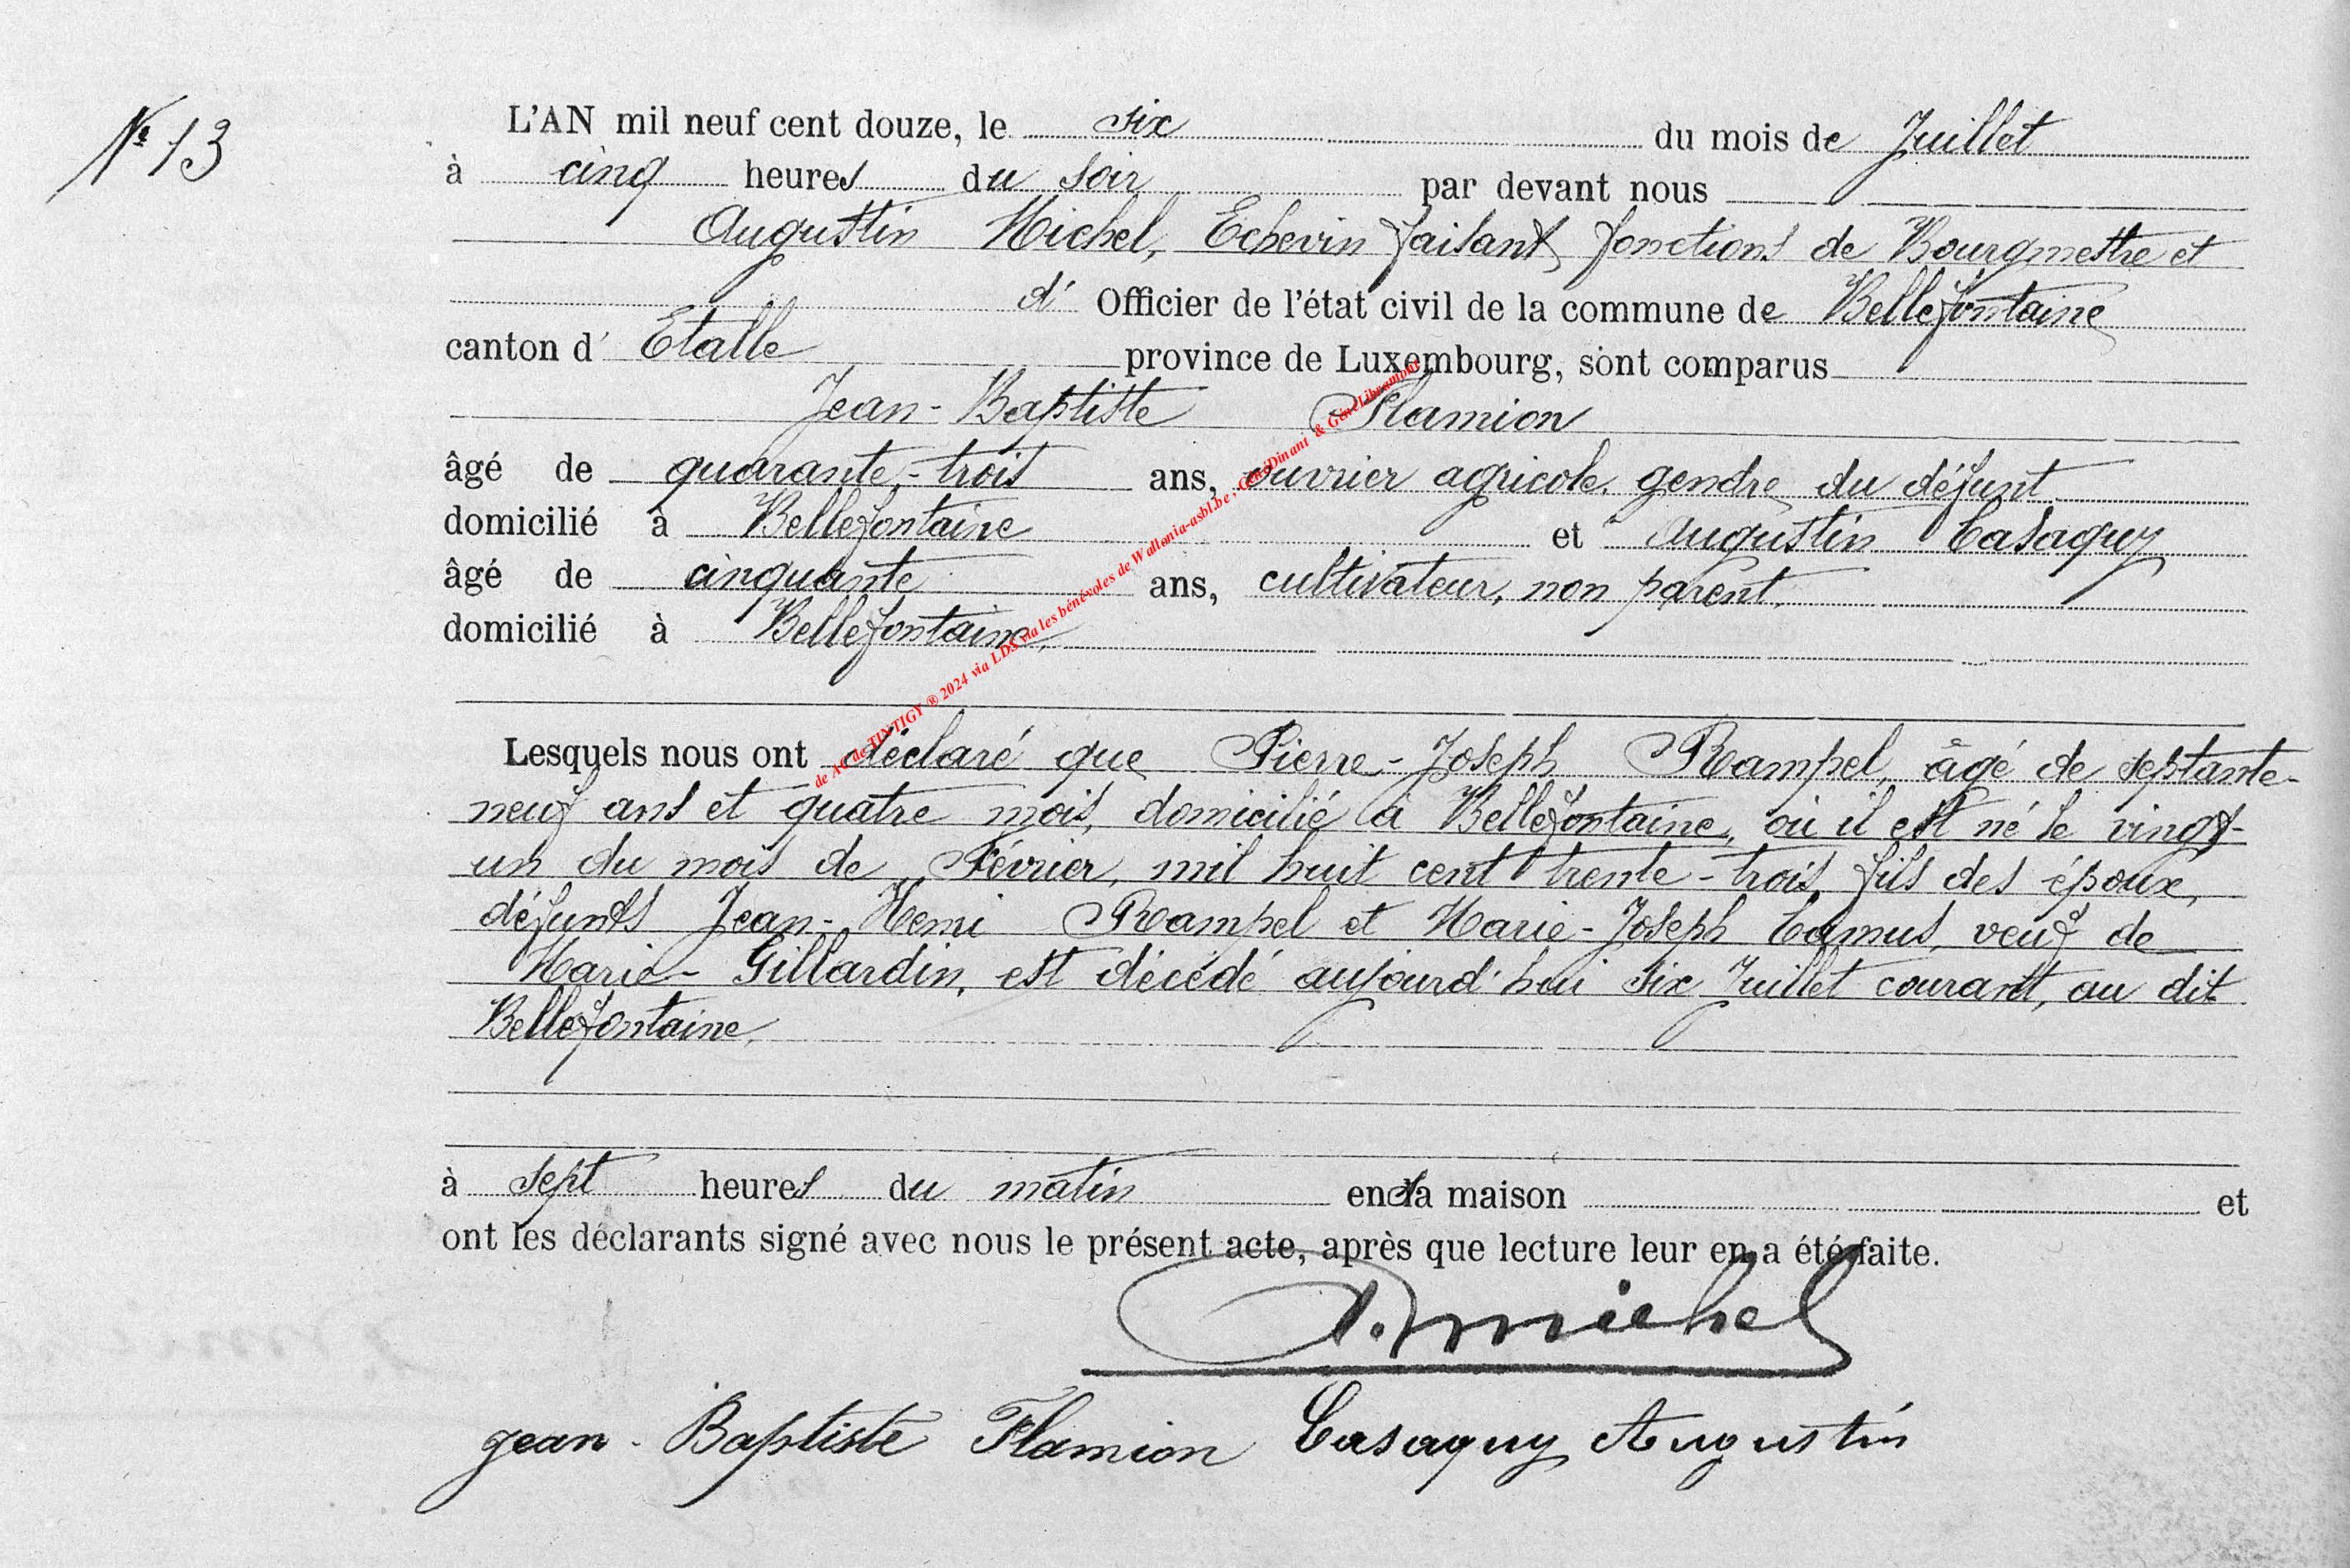 Nº 13
L'AN mil neuf cent douze, le six du mois de Juillet
à cinq heures du soir par devant nous
Augustin Michel, Echevin faisant fonctions de Bourgmestre et
d' Officier de l'état civil de la commune de Bellefontaine
canton d' Etalle province de Luxembourg, sont comparus
Jean-Baptiste Flamion
âgé de quarante-trois ans, ouvrier agricole, gendre du défunt
domicilié à Bellefontaine et Augustin Casaquy
âgé de cinquante ans, cultivateur, non parent,
domicilié à Bellefontaine,
Lesquels nous ont déclaré que Pierre-Joseph Rampel, âgé de septante-
neuf ans et quatre mois, domicilié à Bellefontaine, où il est né le vingt-
un du mois de Février, mil huit cent trente-trois, fils des époux,
défunts Jean-Henri Rampel et Marie-Joseph Camus, veuf de
Marie-Gillardin, est décédé aujourd'hui six Juillet courant, au dit
Bellefontaine,
à sept heures du matin en sa maison et
ont les déclarants signé avec nous le présent acte, après que lecture leur en a été faite.
A. Michel
jean-Baptiste Flamion Casaquy Augustin
de AC de TINTIGY ® 2024 via LDS via les bénévoles de Wallonia-asbl.be, GénéDinant & GénéLibramont